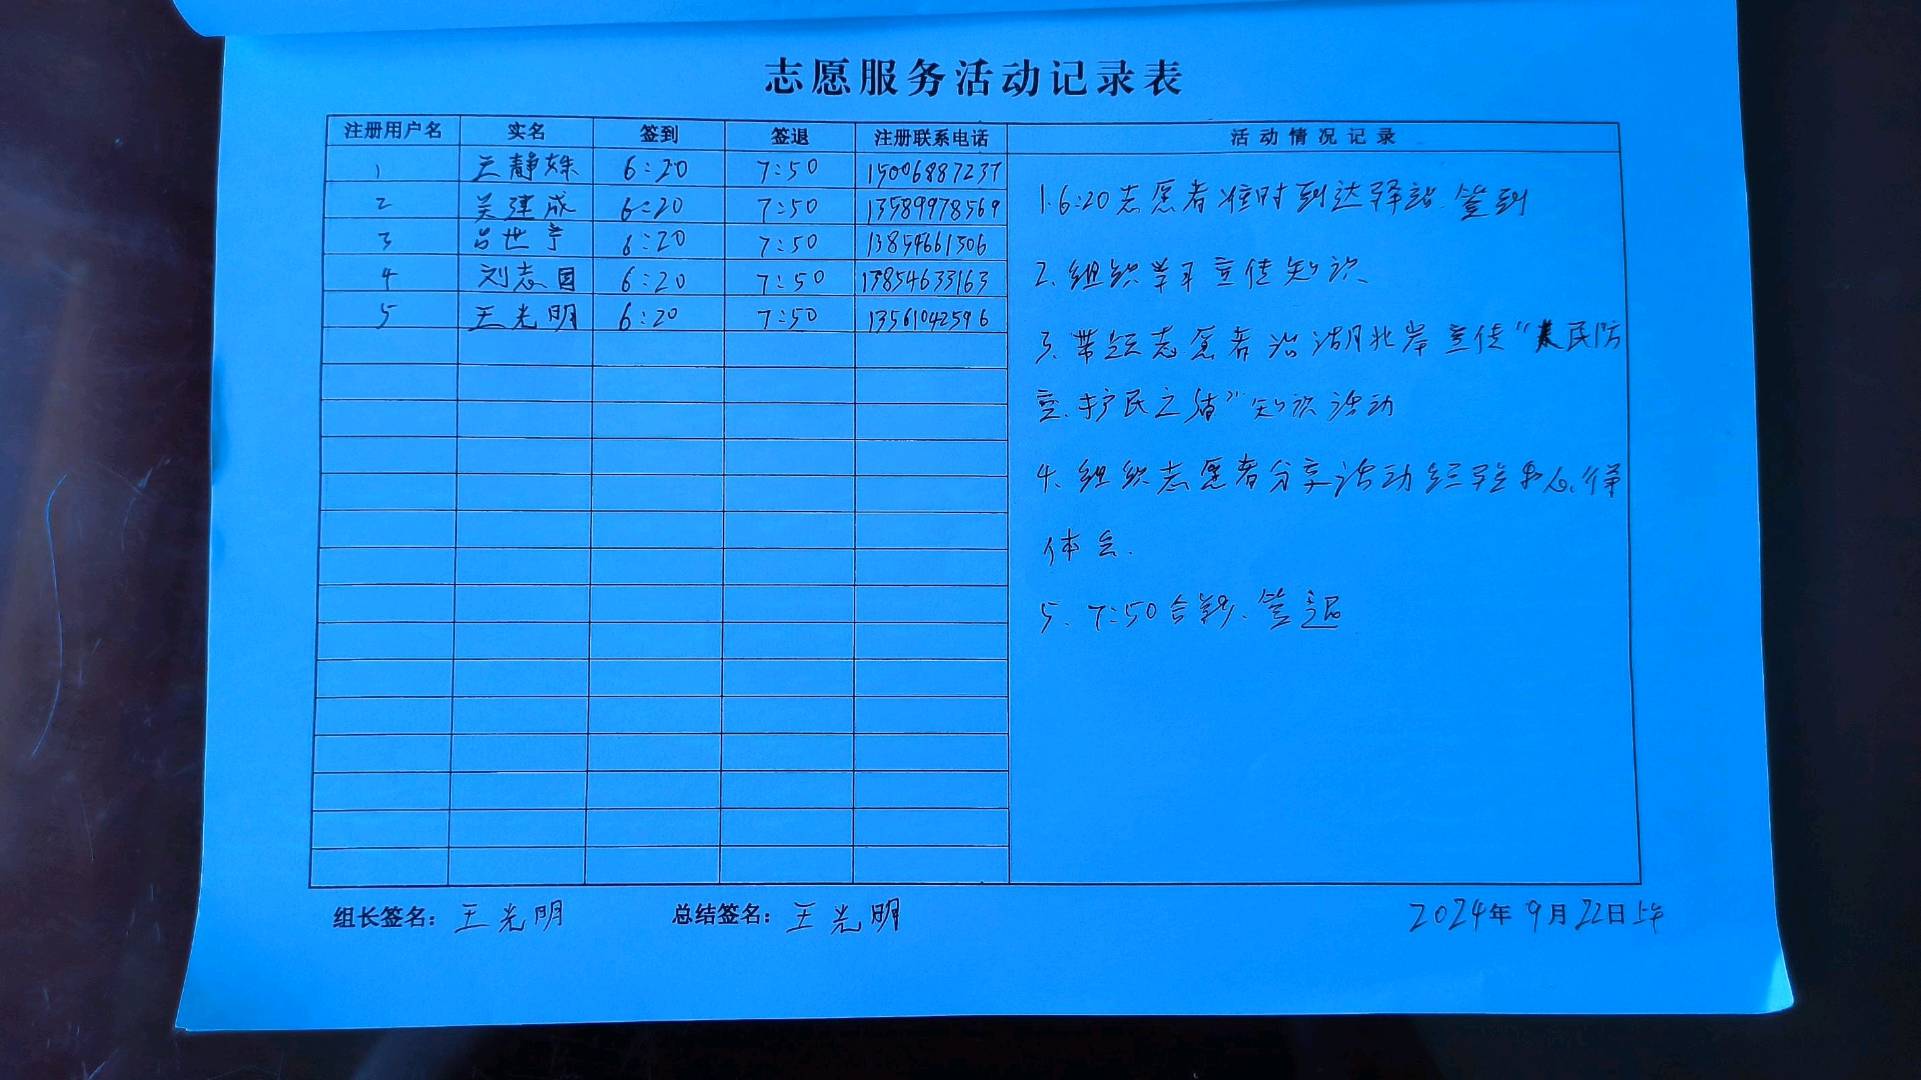 志愿服务活动记录表
注册用户名 实名 签到 签退 注册联系电话 活动情况记录
1 王静姝 6:20 7:50 15006887237
2 吴建成 6:20 7:50 13589978569
3 吕世亭 6:20 7:50 13854661306
4 刘志国 6:20 7:50 13854633163
5 王光明 6:20 7:50 13561042596
1.6:20志愿者准时到达驿站.签到
2.组织学习宣传知识、
3、带领志愿者沿湖北岸宣传“人民防
空.护民之盾”知识活动
4、组织志愿者分享活动经验和心得
体会.
5、7:50合影、签退
组长签名：王光明 总结签名：王光明 2024年9月22日上午